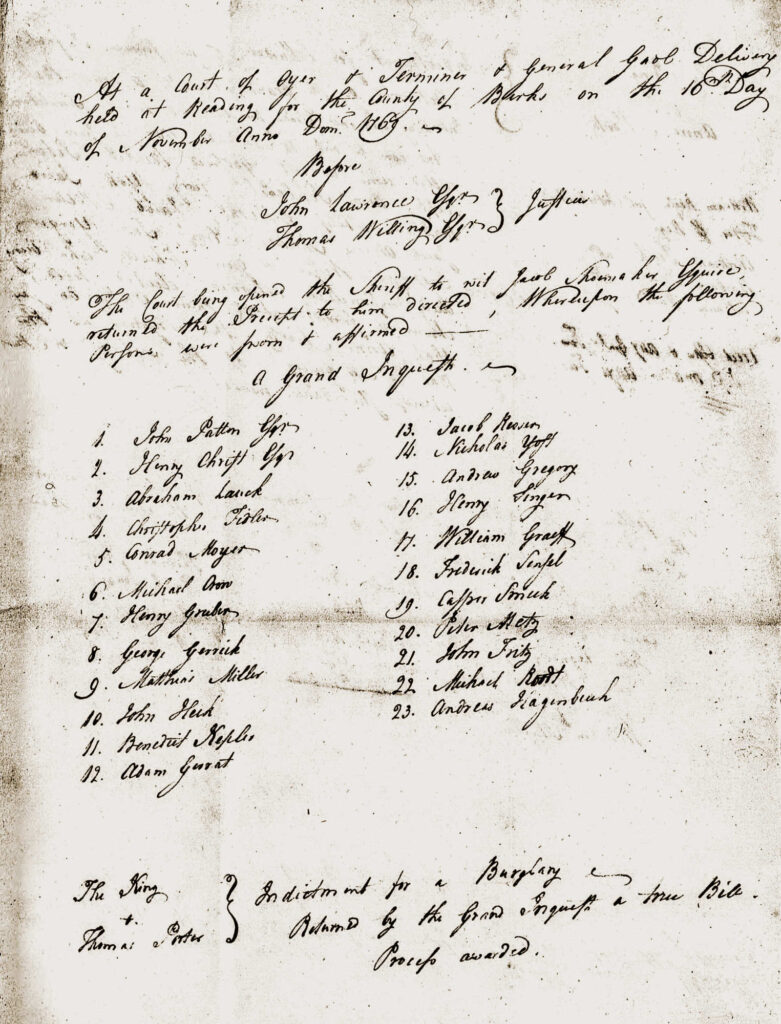 At a Court of Oyer & Terminer & General Gaol Delivery
held at Reading for the County of Barks on the 16th Day
of November Anno Dom. 1769.
Before
John Lawrence Esqr } Justices
Thomas Willing Esqr
The Court being opened the Sheriff to wit Jacob Shoemaker Esquire
returned the Precept to him directed, Whereupon the following
Persons were sworn & affirmed
a Grand Inquest.
1. John Patton Esqr
2. Henry Christ Esqr
3. Abraham Lauck
4. Christopher Fidler
5. Conrad Moyer
6. Michael Crow
7. Henry Gruber
8. George Gerrick
9. Matthias Miller
10. John Heck
11. Benedict Kepler
12. Adam Gerrat
13. Jacob Reeser
14. Nicholas Yost
15. Andrew Gregory
16. Henry Singer
17. William Graeff
18. Frederick Sensel
19. Casper Smeck
20. Peter Metz
21. John Fritz
22. Michael
23. Andreas Hagenbuch
The King } Indictment for a Burglary
+ Returned by the Grand Inquest a true Bill.
Thomas Porter
Process awarded.